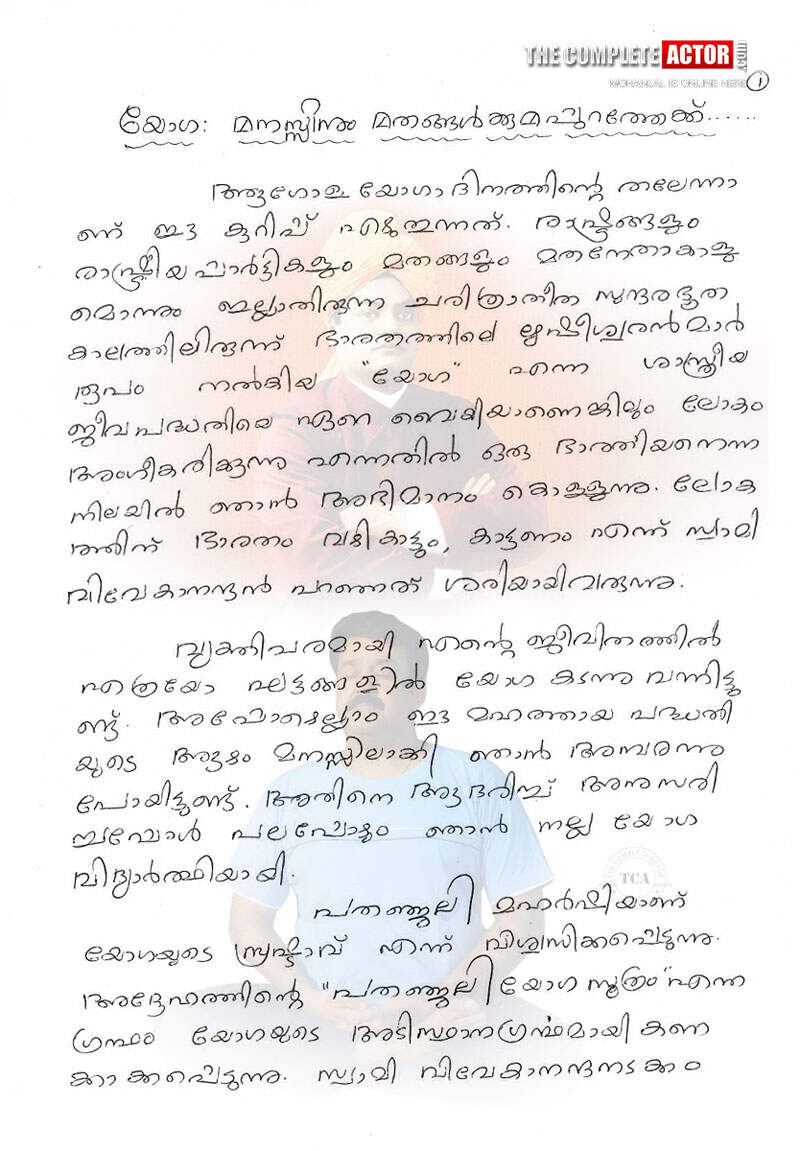 THE COMPLETE ACTOR .com
MOHANLAL IS ONLINE HERE
1
യോഗ: മനസ്സിനും മതങ്ങൾക്കുമപ്പുറത്തേക്ക്......
ആഗോള യോഗാ ദിനത്തിന്റെ തലേന്നാ
ണ് ഈ കുറിപ്പ് എഴുതുന്നത്. രാഷ്ട്രങ്ങളും
രാഷ്ട്രീയ പാർട്ടികളും മതങ്ങളും മതനേതാക്കളു
മൊന്നും ഇല്ലാതിരുന്ന ചരിത്രാതീത സുന്ദരഭൂത
കാലത്തിലിരുന്ന് ഭാരതത്തിലെ ഋഷീശ്വരൻമാർ
രൂപം നൽകിയ "യോഗ" എന്ന ശാസ്ത്രീയ
ജീവപദ്ധതിയെ ഏറെ വൈകിയാണെങ്കിലും ലോകം
അംഗീകരിക്കുന്നു എന്നതിൽ ഒരു ഭാരതീയനെന്ന
നിലയിൽ ഞാൻ അഭിമാനം കൊള്ളുന്നു. ലോക
ത്തിന് ഭാരതം വഴികാട്ടും, കാട്ടണം എന്ന് സ്വാമി
വിവേകാനന്ദൻ പറഞ്ഞത് ശരിയായിവരുന്നു.
വ്യക്തിപരമായി എന്റെ ജീവിതത്തിൽ
എത്രയോ ഘട്ടങ്ങളിൽ യോഗ കടന്നു വന്നിട്ടു
ണ്ട്. അപ്പോഴെല്ലാം ഈ മഹത്തായ പദ്ധതി
യുടെ ആഴം മനസ്സിലാക്കി ഞാൻ അമ്പരന്നു
പോയിട്ടുണ്ട്. അതിനെ ആദരിച്ച് അനുസരി
ച്ചപ്പോൾ പലപ്പോഴും ഞാൻ നല്ല യോഗ
വിദ്യാർത്ഥിയായി.
TCA
പതഞ്ജലി മഹർഷിയാണ്
യോഗയുടെ സ്രഷ്ടാവ് എന്ന് വിശ്വസിക്കപ്പെടുന്നു.
അദ്ദേഹത്തിന്റെ "പതഞ്ജലി യോഗ സൂത്രം" എന്ന
ഗ്രന്ഥം യോഗയുടെ അടിസ്ഥാനഗ്രന്ഥമായി കണ
ക്കാക്കപ്പെടുന്നു. സ്വാമി വിവേകാനന്ദനടക്കം